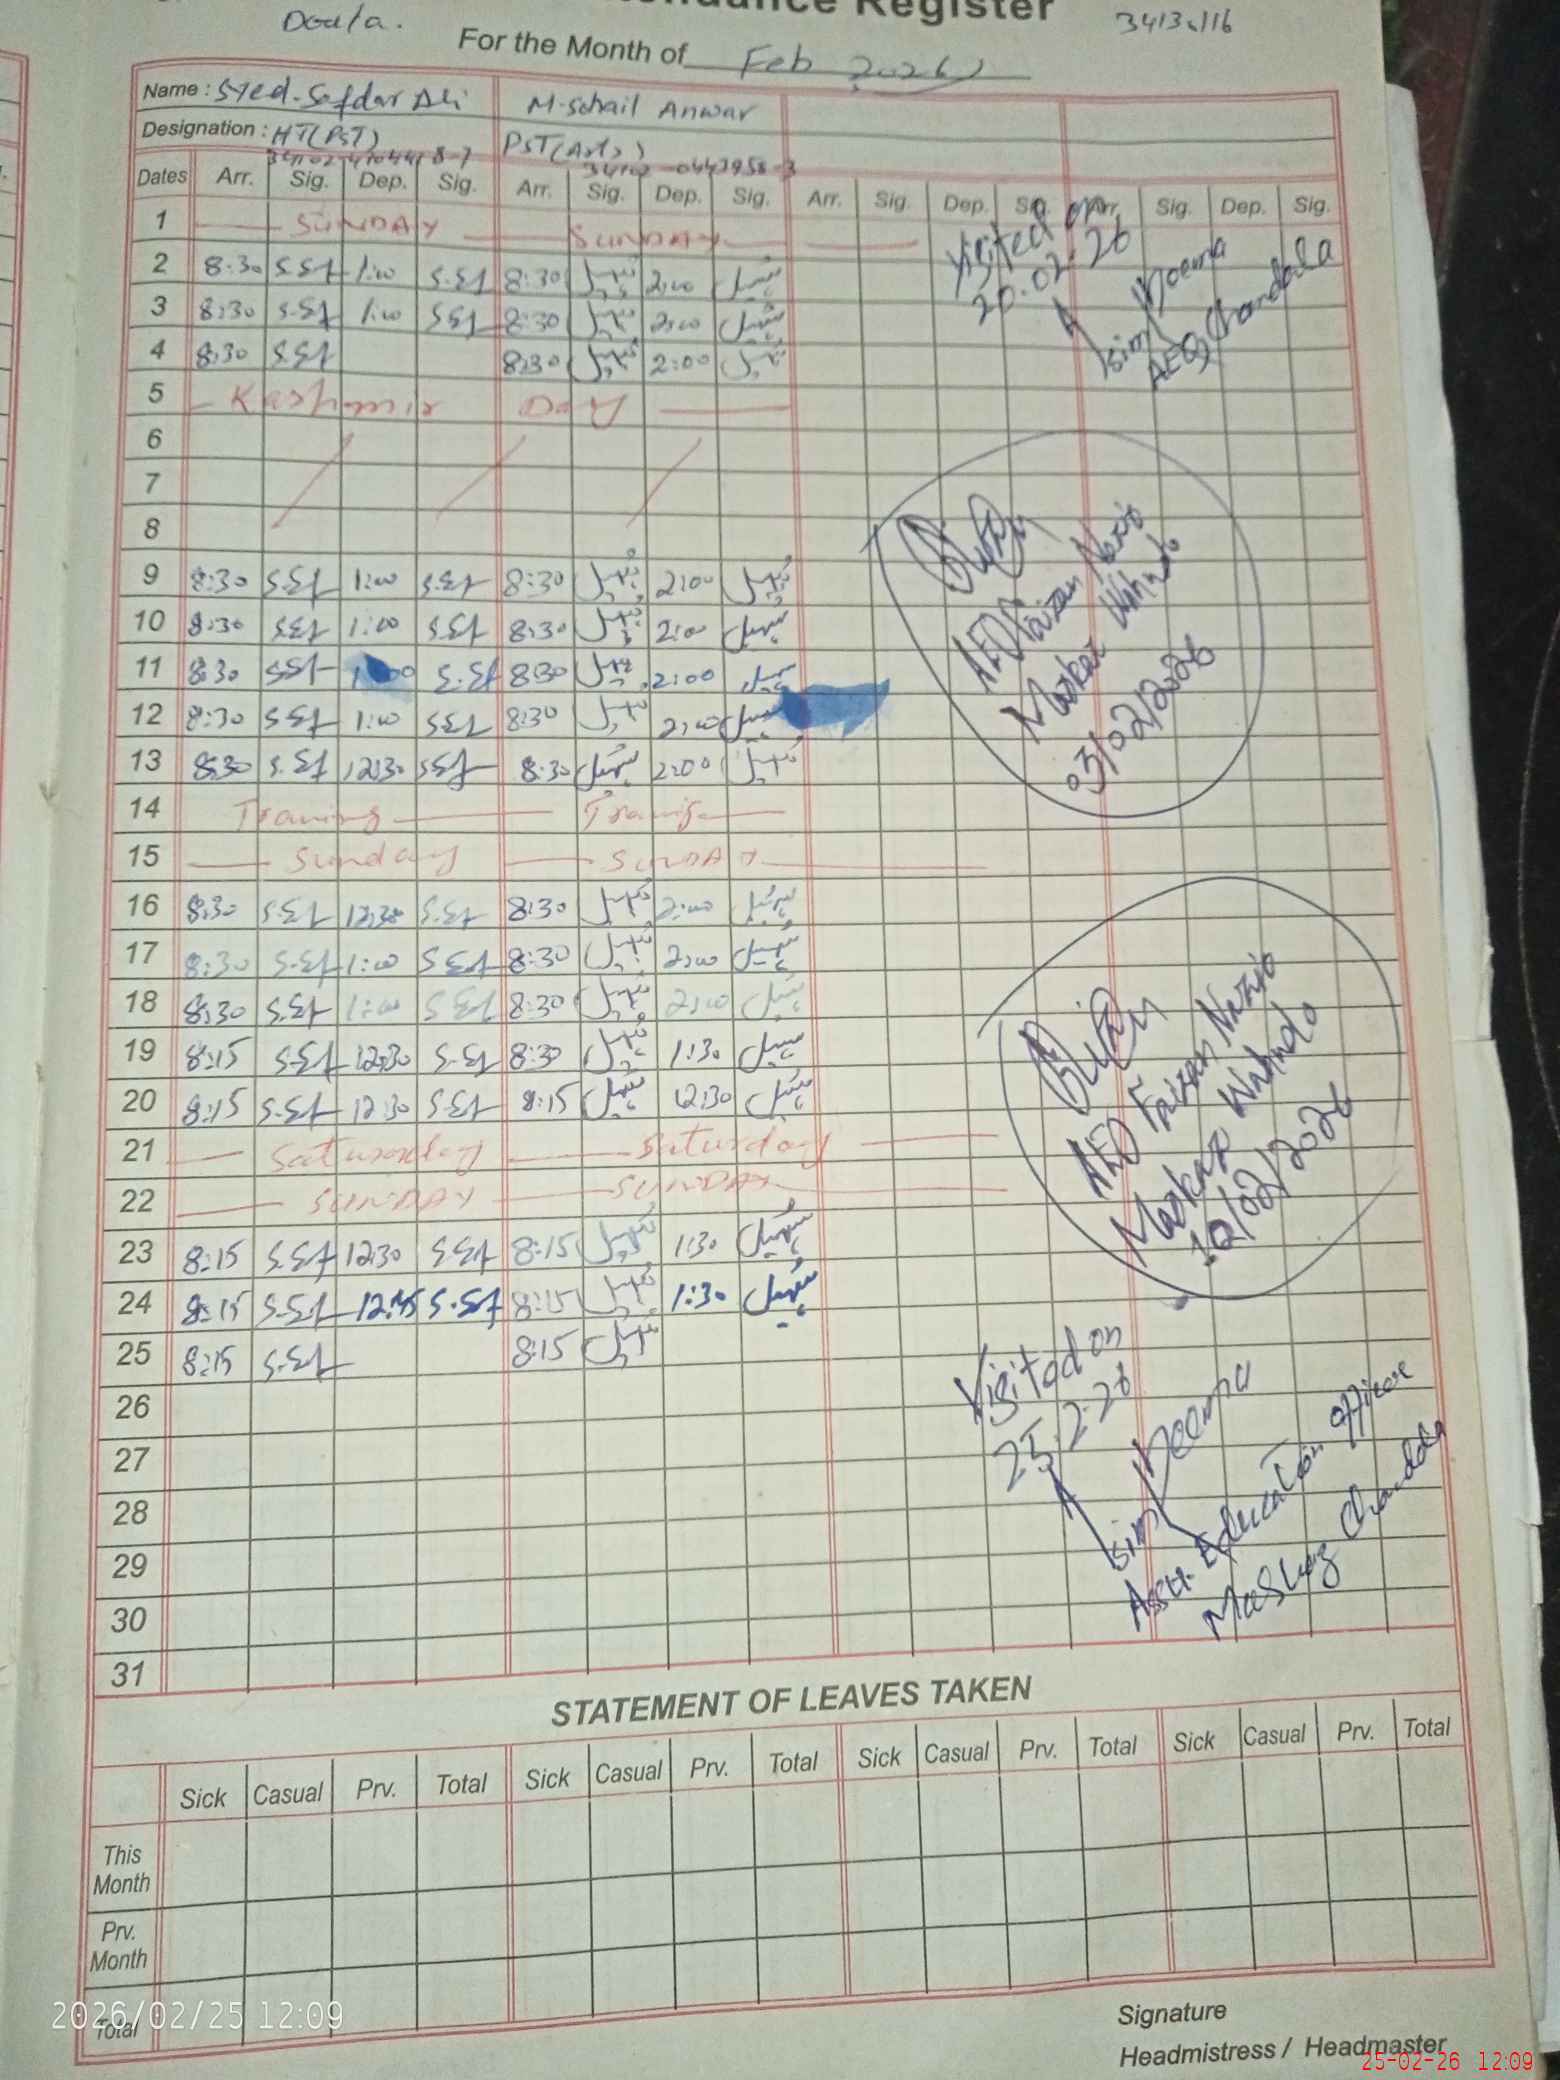 Attendance Register
Doula.
34130116
For the Month of Feb 2026
Name: Syed. Safdar Ali M. Sohail Anwar
Designation: HT(PST) PST(Arts)
Dates Arr. Sig. Dep. Sig. Arr. Sig. Dep. Sig. Arr. Sig. Dep. Sig. Arr. Sig. Dep. Sig.
1 SUNDAY SUNDAY
2 8:30 1:00 8:30 سہیل 2:00 سہیل
3 8:30 1:00 8:30 سہیل 2:00 سہیل
4 8:30 8:30 سہیل 2:00 سہیل
5 Kashmir Day
6
7
8
9 8:30 1:00 8:30 سہیل 2:00 سہیل
10 8:30 1:00 8:30 سہیل 2:00 سہیل
11 8:30 8:30 سہیل 2:00 سہیل
12 8:30 1:00 8:30 سہیل 2:00 سہیل
13 8:30 12:30 8:30 سہیل 2:00 سہیل
14 Traning Traning
15 Sunday SUNDAY
16 8:30 12:30 8:30 سہیل 2:00 سہیل
17 8:30 1:00 8:30 سہیل 2:00 سہیل
18 8:30 1:00 8:30 سہیل 2:00 سہیل
19 8:15 12:30 8:30 سہیل 1:30 سہیل
20 8:15 12:30 8:15 سہیل 12:30 سہیل
21 Saturday Saturday
22 SUNDAY SUNDAY
23 8:15 12:30 8:15 سہیل 1:30 سہیل
24 8:15 12:45 8:15 سہیل 1:30 سہیل
25 8:15 8:15 سہیل
26
27
28
29
30
31
Visited on
20.02.26
Asim Naema
AEO, Chandala
AEO Faizan Nazir
Markaz Wahndo
03/02/2026
AEO Faizan Nazir
Markaz Wahndo
12/02/2026
Visited on
25.2.26
Asim Naema
Asstt. Education Officer
Markaz Chandala
STATEMENT OF LEAVES TAKEN
Sick Casual Prv. Total Sick Casual Prv. Total Sick Casual Prv. Total Sick Casual Prv. Total
This Month
Prv. Month
Total
Signature
Headmistress / Headmaster
2026/02/25 12:09
25-02-26 12:09